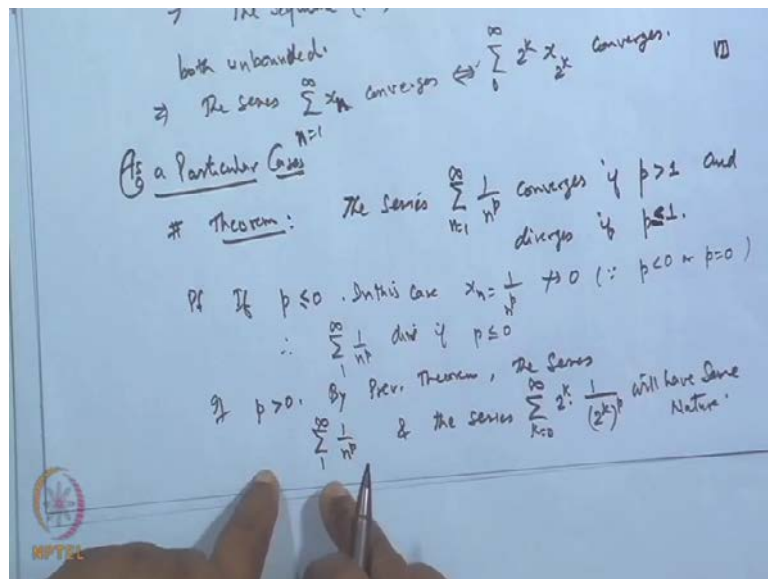 The
both unbounded.
⇒ The series ∑_{n=1}^{∞} x_n converges ⇔ ∑_{0}^{∞} 2^k x_{2^k} converges.
As a Particular Cases
# Theorem: The series ∑_{n=1}^{∞} 1/n^p converges if p>1 and
diverges if p≤1.
Pf If p≤0. In this case x_n = 1/n^p ↛ 0 (∵ p<0 or p=0)
∴ ∑_{1}^{∞} 1/n^p div if p≤0
If p>0. By Prev. Theorem, the series
∑_{1}^{∞} 1/n^p & the series ∑_{k=0}^{∞} 2^k · 1/(2^k)^p will have same
Nature.
NPTEL